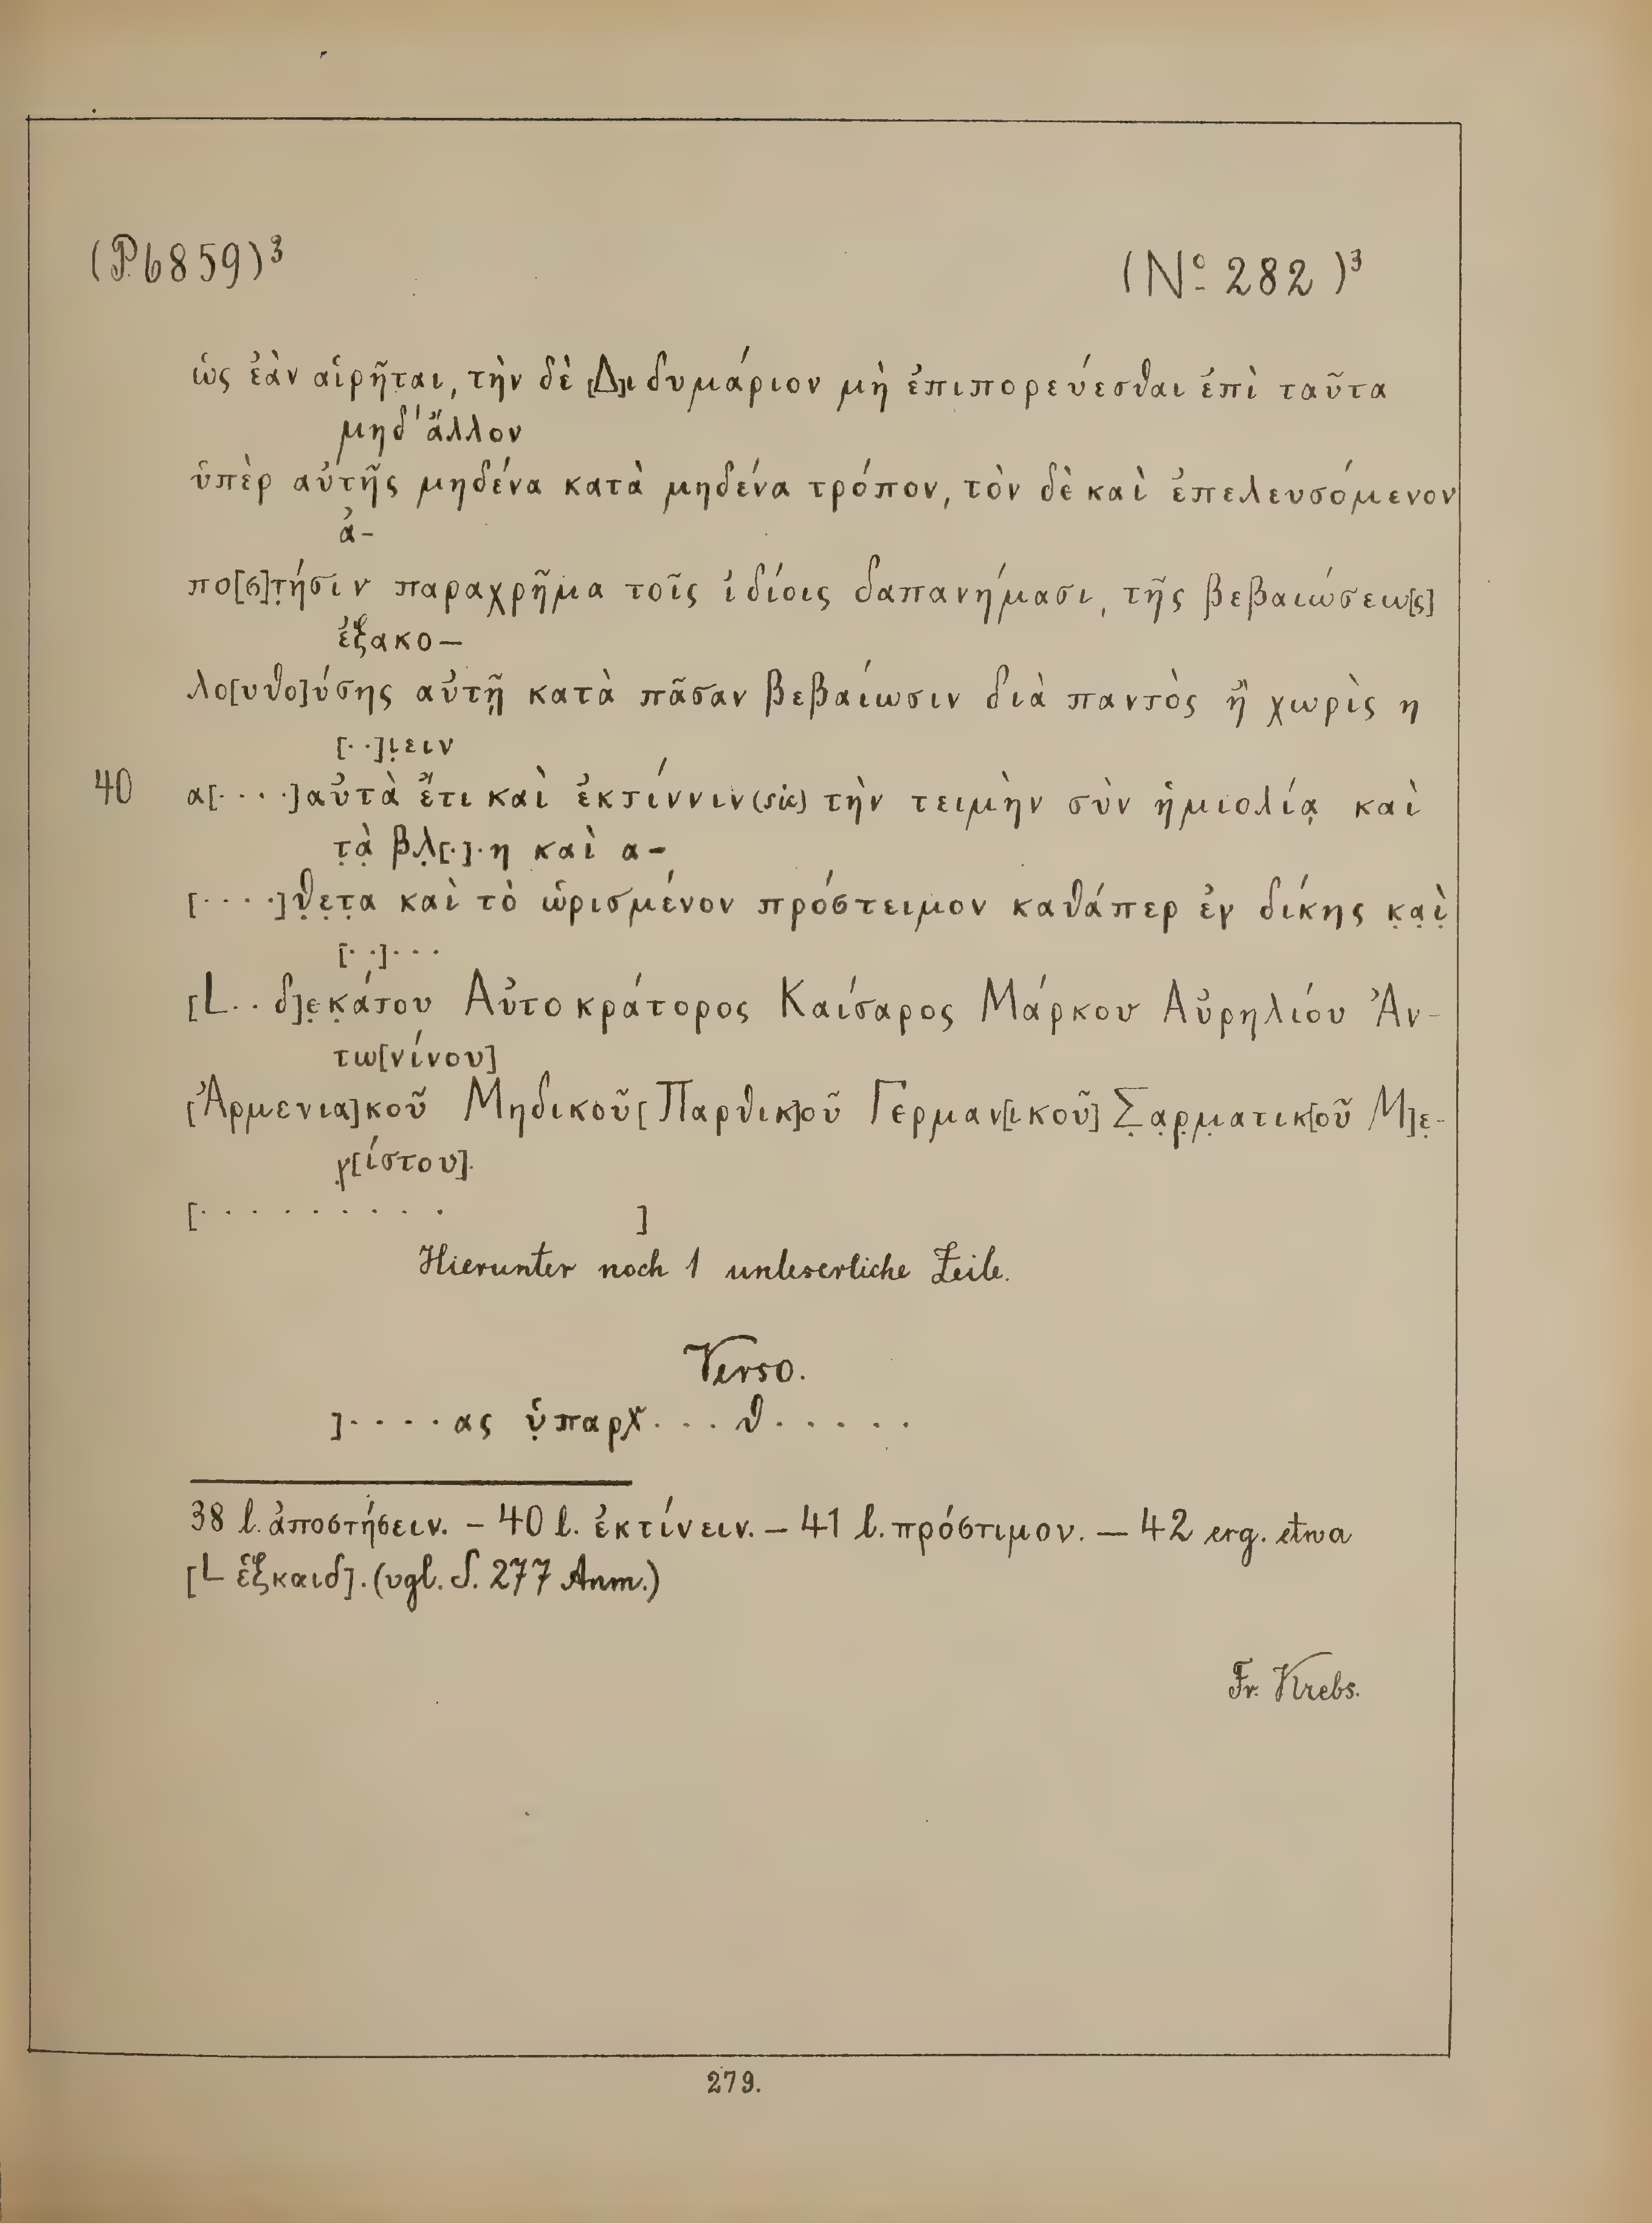 (P. 6859)³
(Nº 282)³
ὡς ἐὰν αἱρῆται, τὴν δὲ [Δ]ιδυμάριον μὴ ἐπιπορεύεσθαι ἐπὶ ταῦτα
μηδ' ἄλλον
ὑπὲρ αὐτῆς μηδένα κατὰ μηδένα τρόπον, τὸν δὲ καὶ ἐπελευσόμενον
ἀ-
πο[σ]τ̣ήσιν παραχρῆμα τοῖς ἰδίοις δαπανήμασι, τῆς βεβαιώσεω[ς]
ἐξακο-
λο[υθο]ύσης αὐτῇ κατὰ πᾶσαν βεβαίωσιν διὰ παντὸς ἢ χωρὶς η
[· ·]ι̣ειν
40 α[· · · ·]αὐτὰ ἔτι καὶ ἐκτίννιν (sic) τὴν τειμὴν σὺν ἡμιολίᾳ καὶ
τ̣ὰ̣ βλ̣[·]·η καὶ α-
[· · · ·]θ̣ε̣τ̣α καὶ τὸ ὡρισμένον πρόστειμον καθάπερ ἐγ δίκης κ̣α̣ὶ̣
[· ·]· · ·
[L · · δ]ε̣κ̣άτου Αὐτοκράτορος Καίσαρος Μάρκου Αὐρηλίου Ἀν-
τω[νίνου]
[Ἀρμενια]κοῦ Μηδικοῦ [Παρθικ]οῦ Γερμαν[ικοῦ] Σ̣α̣ρ̣μ̣ατικ[οῦ Μ]ε̣-
γ̣[ίστου].
[· · · · · · · · · ]
Hierunter noch 1 unleserliche Zeile.
Verso.
]· · · · ας ὑ̣παρχ · · · θ · · · · ·
38 l. ἀποστήσειν. – 40 l. ἐκτίνειν. – 41 l. πρόστιμον. – 42 erg. etwa
[L ἑξκαιδ]. (vgl. S. 277 Anm.)
Fr. Krebs.
279.